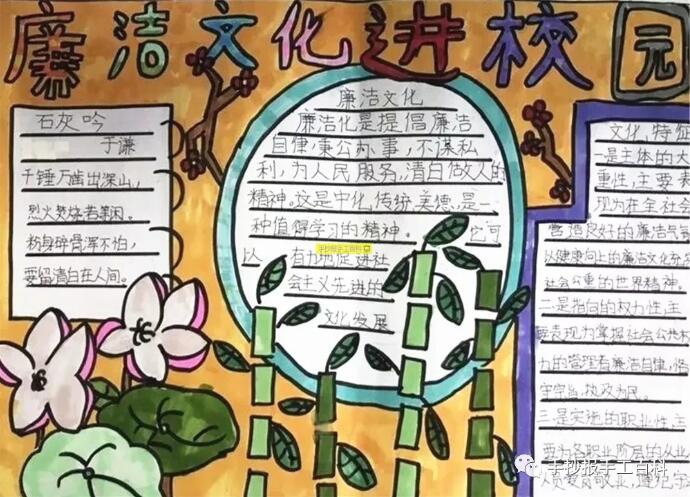 廉洁文化进校园
石灰吟
于谦
千锤万凿出深山，
烈火焚烧若等闲。
粉身碎骨浑不怕，
要留清白在人间。
廉洁文化
廉洁化是提倡廉洁
自律，秉公办事，不谋私
利，为人民服务，清白做人的
精神。这是中化传统美德，是一
种值得学习的精神。 它可
以 有力地促进社
会主义先进的
文化发展
手抄报手工百科
文化，特征
一是主体的大
重性，主要表
现为在全社会
营造良好的廉洁氛
以健康向上的廉洁文化充
社会公重的世界精神。
二是指向的权力性，主
要表现为掌握社会公共权
力的管理者廉洁自律，恪
守宗旨，执政为民。
三是实施的职业性，主
要为各职业阶层的从业
人员爱岗敬业，遵纪守
手抄报手工百科